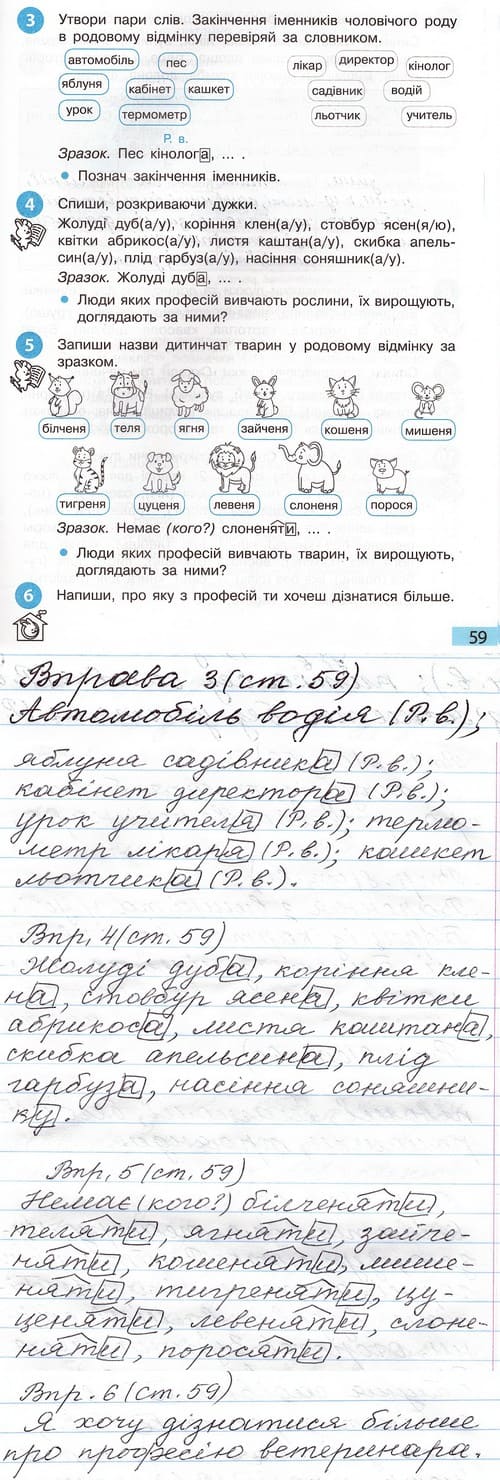 3 Утвори пари слів. Закінчення іменників чоловічого роду
в родовому відмінку перевіряй за словником.
автомобіль пес лікар директор кінолог
яблуня кабінет кашкет садівник водій
урок термометр льотчик учитель
Р. в.
Зразок. Пес кінолога, ... .
• Познач закінчення іменників.
4 Спиши, розкриваючи дужки.
Жолуді дуб(а/у), коріння клен(а/у), стовбур ясен(я/ю),
квітки абрикос(а/у), листя каштан(а/у), скибка апель-
син(а/у), плід гарбуз(а/у), насіння соняшник(а/у).
Зразок. Жолуді дуба, ... .
• Люди яких професій вивчають рослини, їх вирощують,
доглядають за ними?
5 Запиши назви дитинчат тварин у родовому відмінку за
зразком.
білченя теля ягня зайченя кошеня мишеня
тигреня цуценя левеня слоненя порося
Зразок. Немає (кого?) слоненяти, ... .
• Люди яких професій вивчають тварин, їх вирощують,
доглядають за ними?
6 Напиши, про яку з професій ти хочеш дізнатися більше.
59
Вправа 3 (ст. 59)
Автомобіль водія (Р.в.);
яблуня садівника (Р.в.);
кабінет директора (Р.в.);
урок учителя (Р.в.); термо-
метр лікаря (Р.в.); кашкет
льотчика (Р.в.).
Впр, 4 (ст. 59)
Жолуді дуба, коріння кле-
на, стовбур ясена, квітки
абрикоса, листя каштана,
скибка апельсина, плід
гарбуза, насіння соняшни-
ку.
Впр, 5 (ст. 59)
Немає (кого?) білченяти,
теляти, ягняти, зайче-
няти, кошеняти, мише-
няти, тигреняти, цу-
ценяти, левеняти, слоне-
няти, поросяти.
Впр. 6 (ст. 59)
Я хочу дізнатися більше
про професію ветеринара.